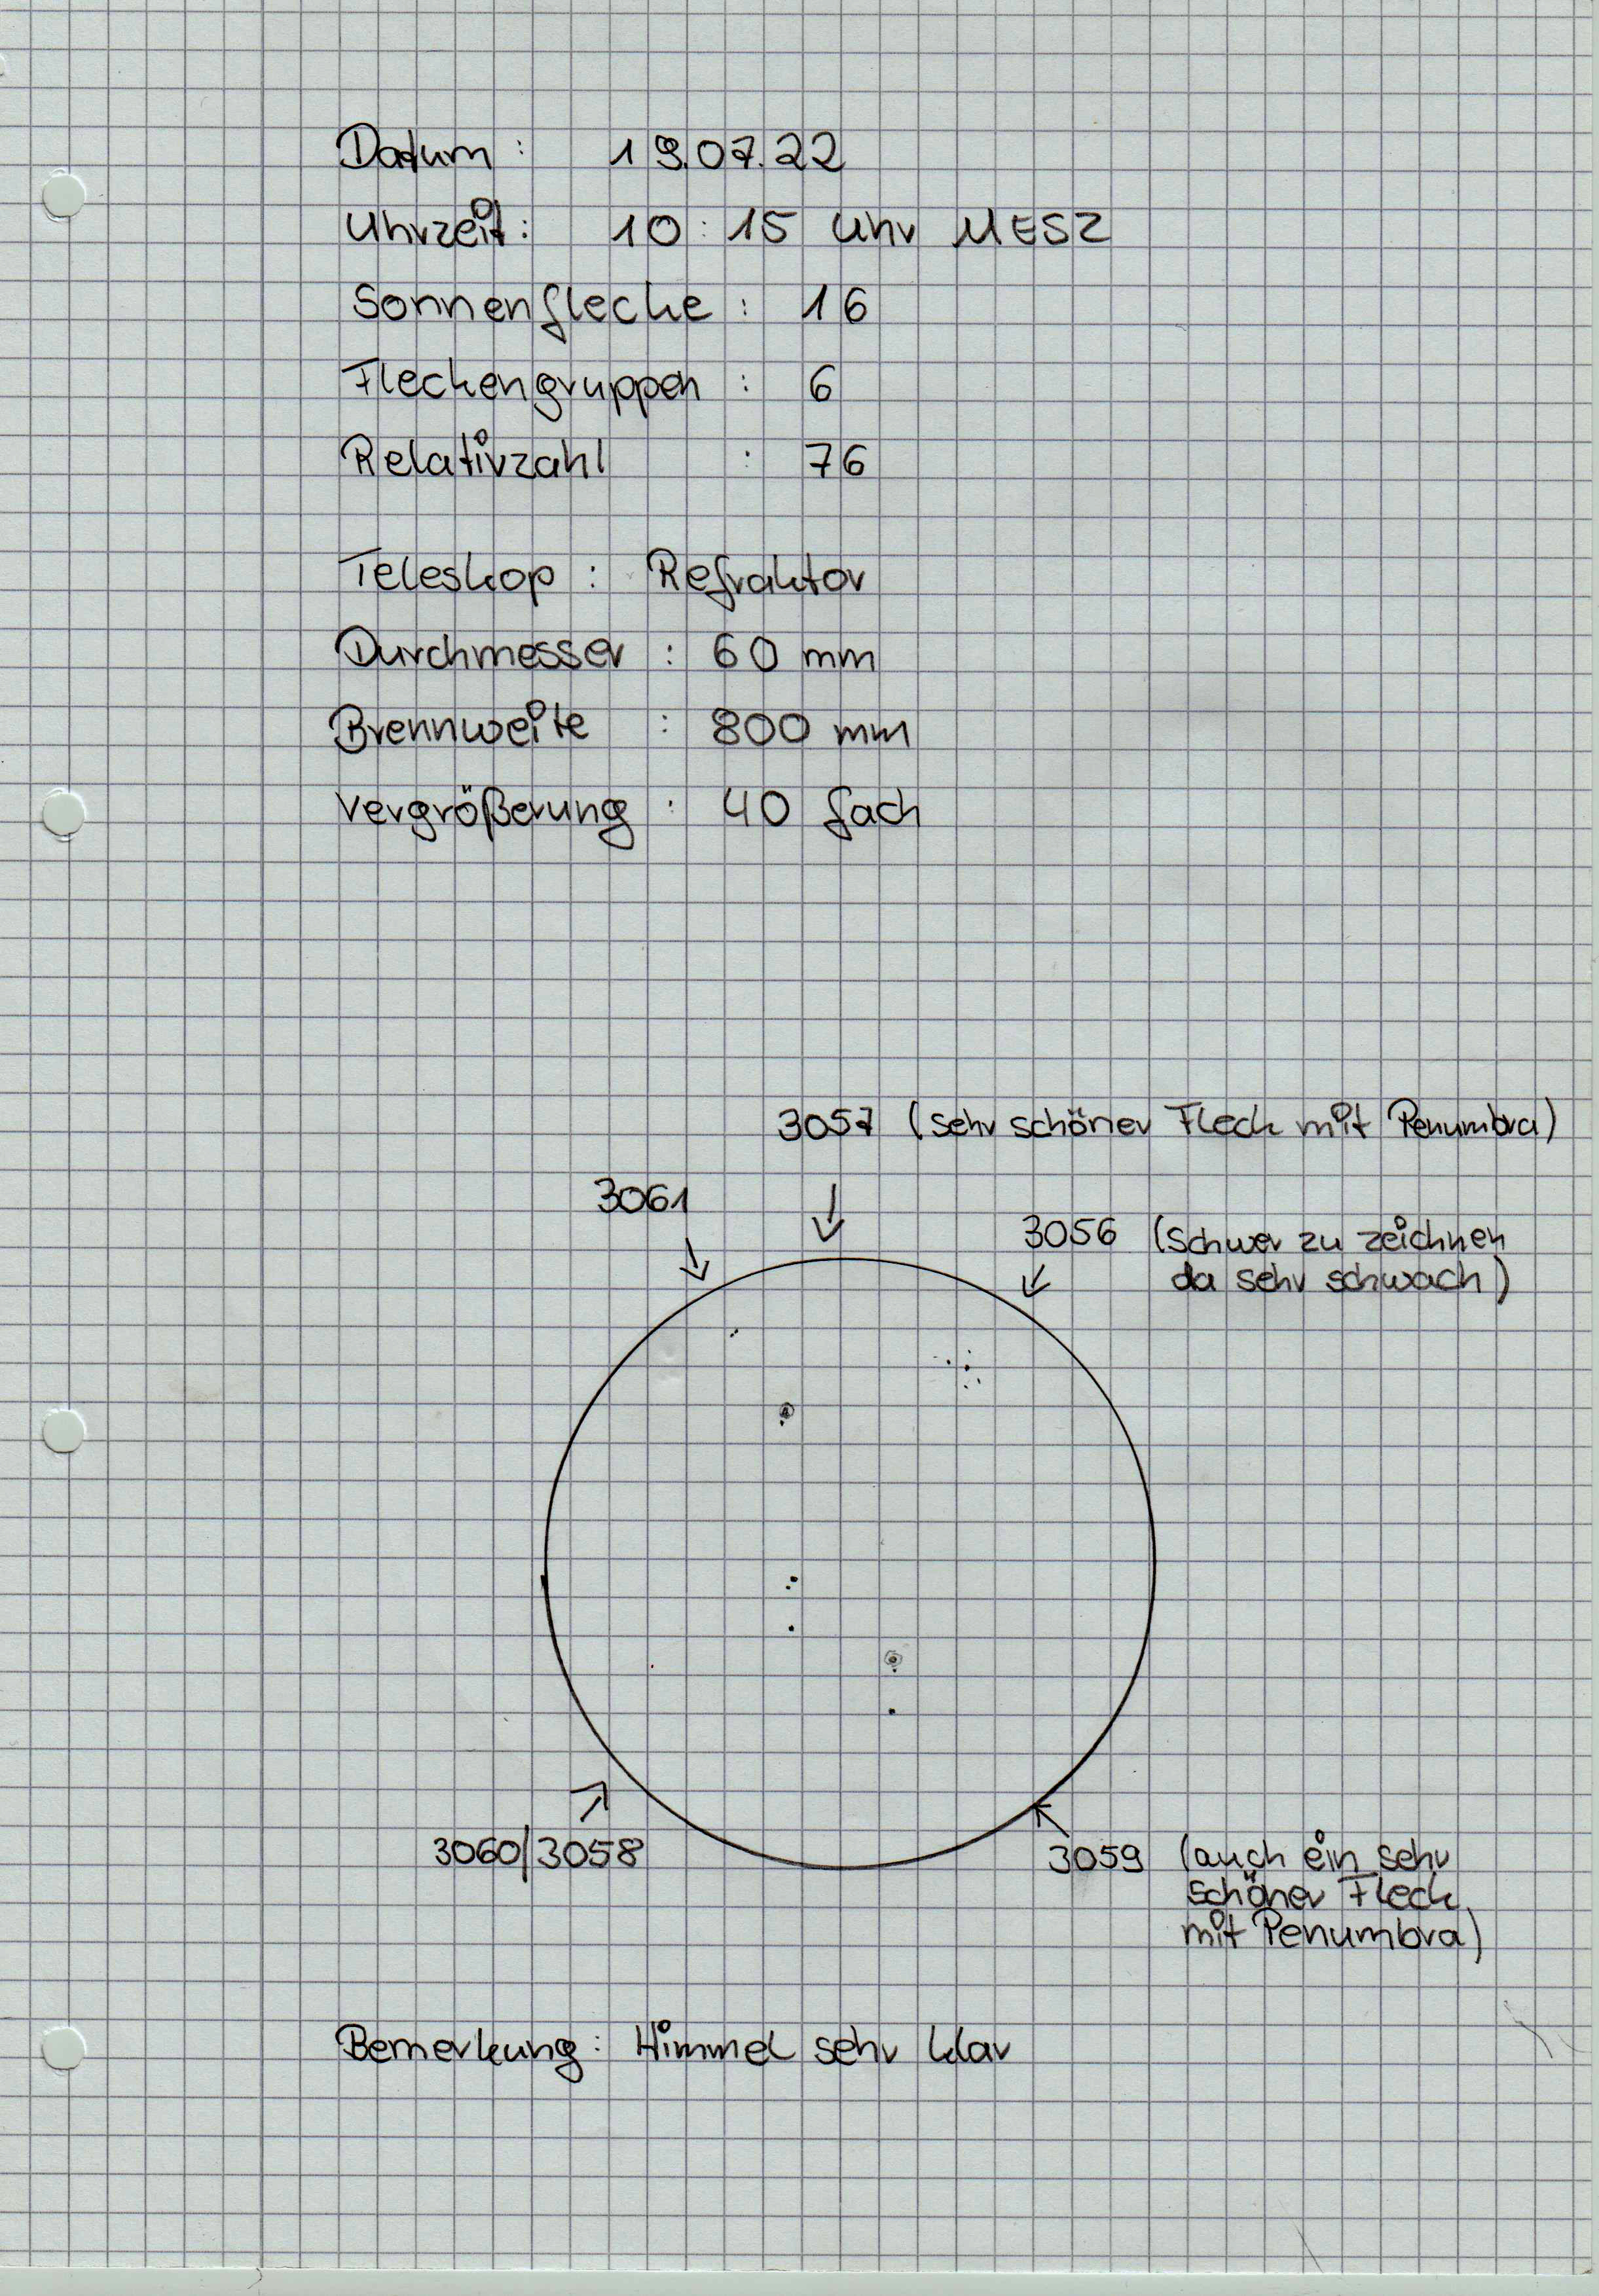 Datum: 19.07.22
Uhrzeit: 10:15 Uhr MESZ
Sonnenflecke: 16
Fleckengruppen: 6
Relativzahl: 76
Teleskop: Refraktor
Durchmesser: 60 mm
Brennweite: 800 mm
Vergrößerung: 40 fach
3057 (sehr schöner Fleck mit Penumbra)
3061
3056 (schwer zu zeichnen
da sehr schwach)
3060/3058
3059 (auch ein sehr
schöner Fleck
mit Penumbra)
Bemerkung: Himmel sehr klar